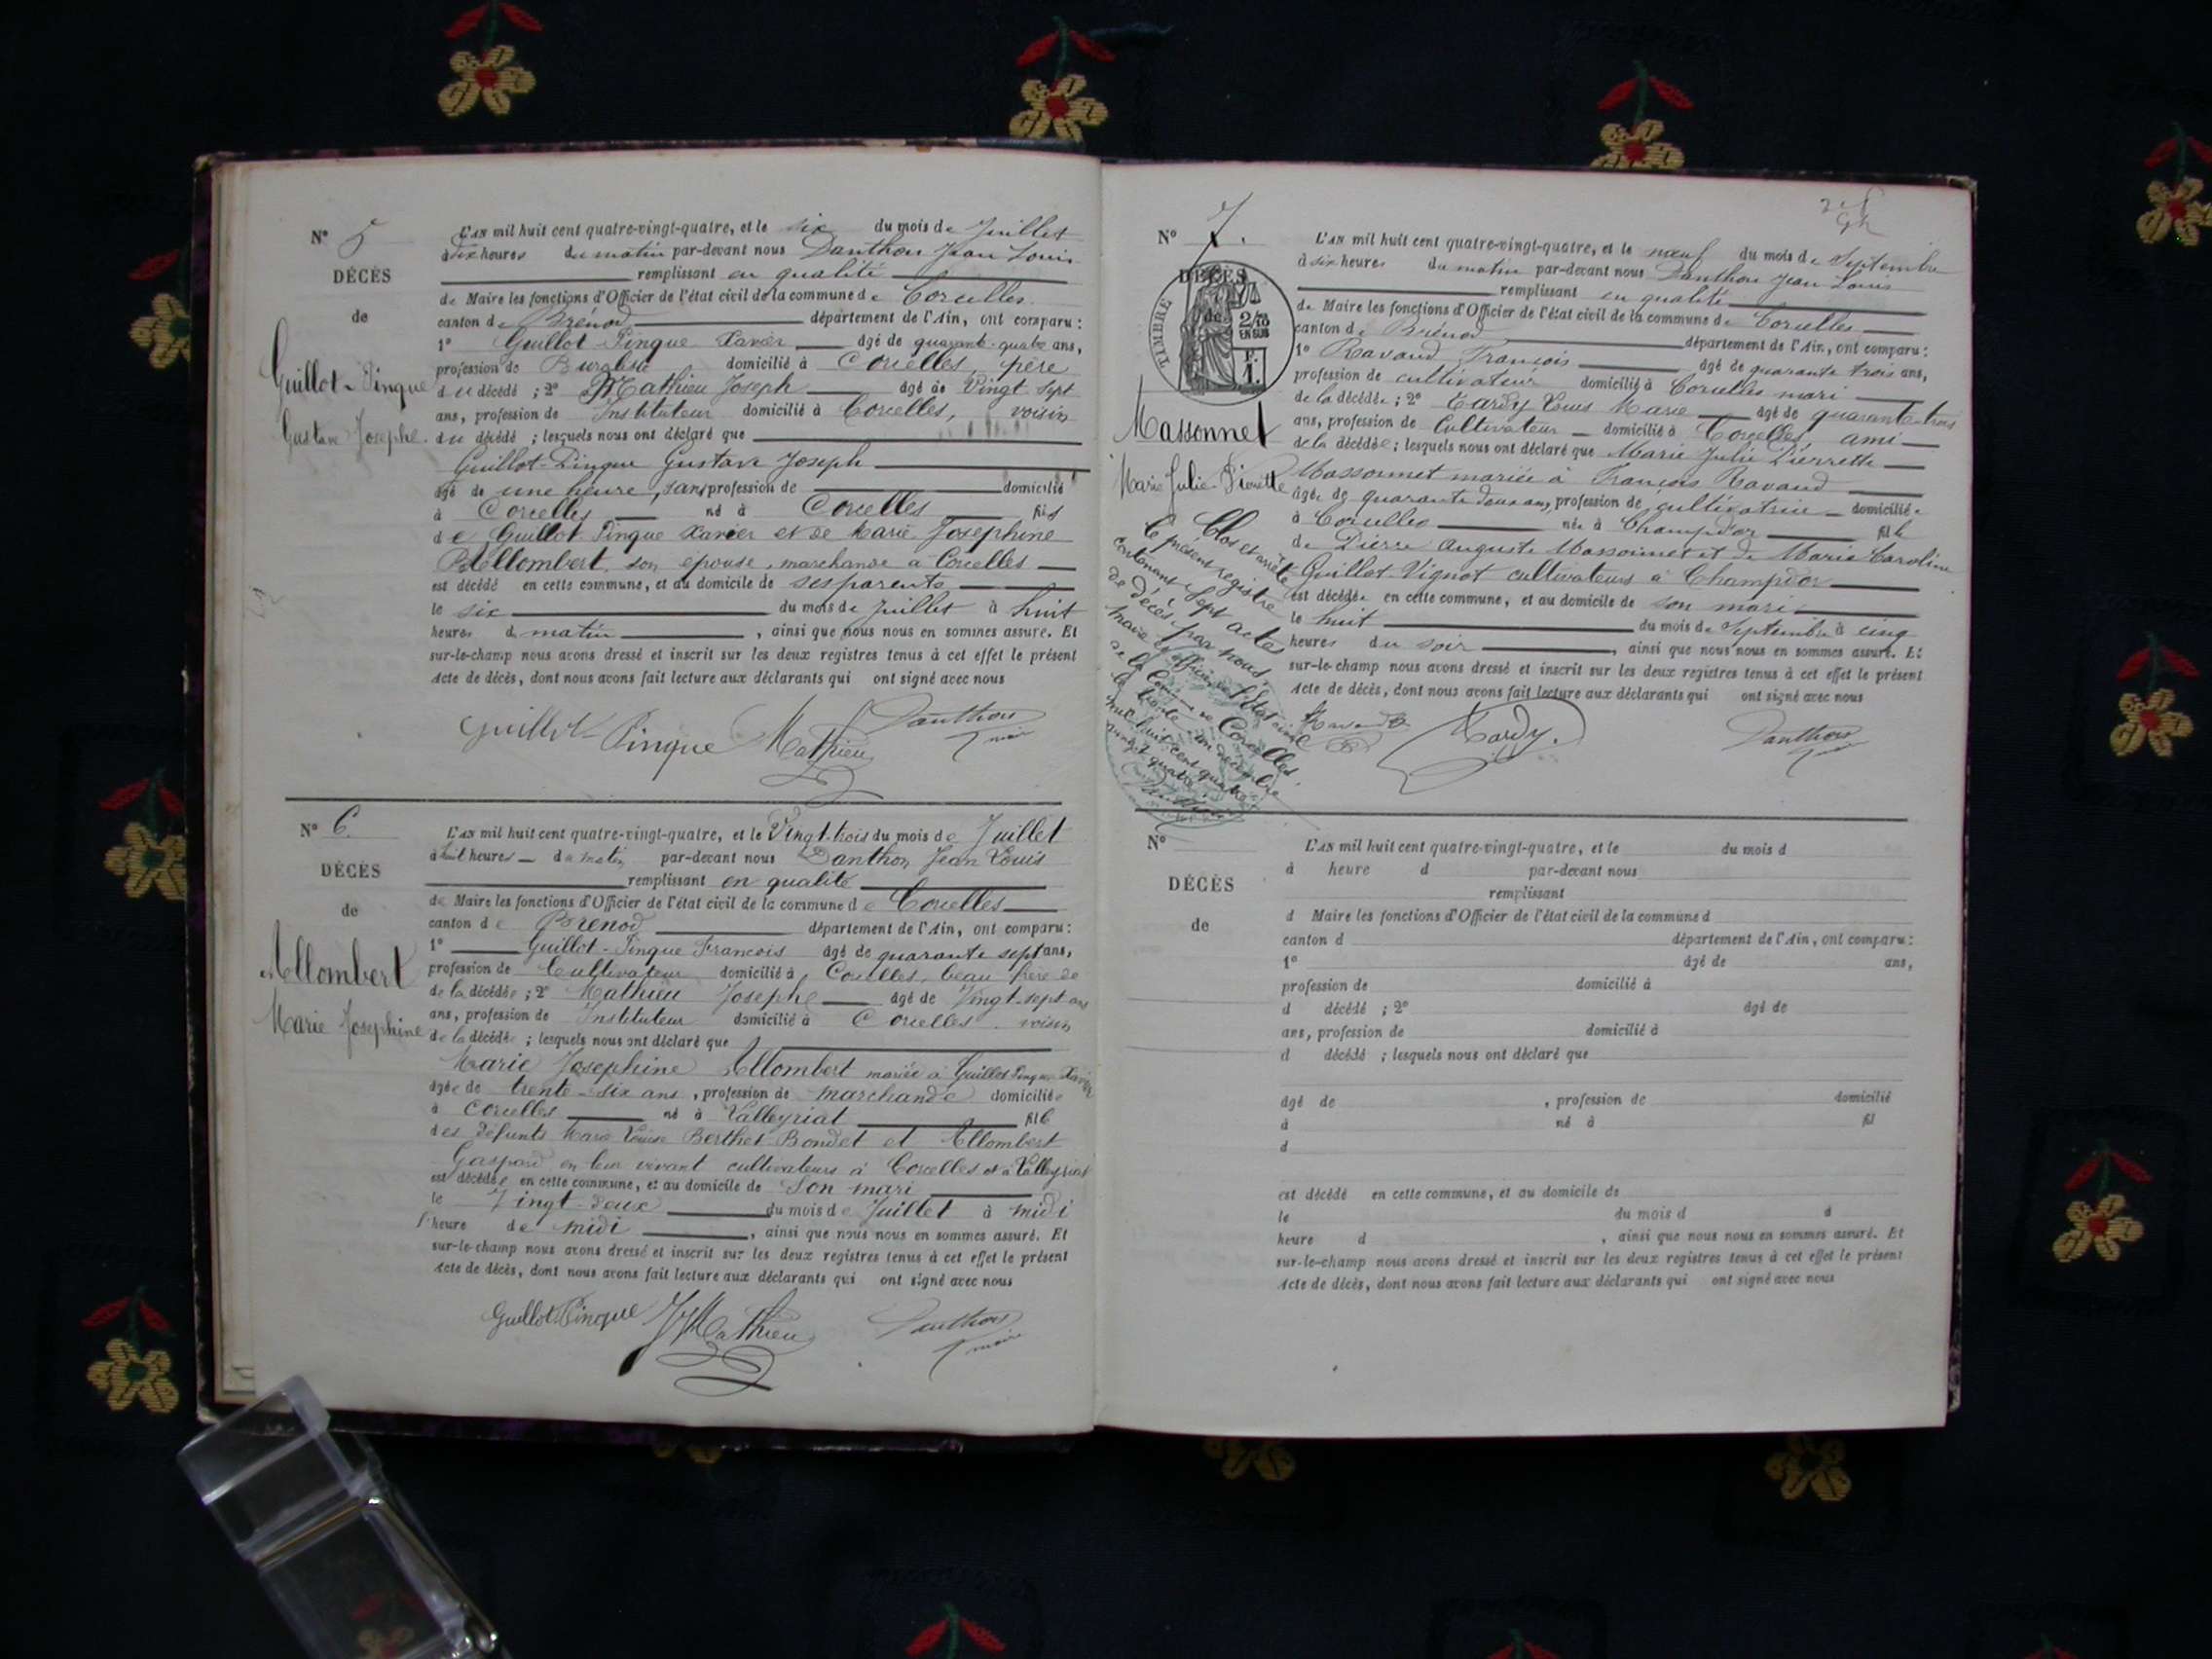 N° 5
DÉCÈS
de
Guillot-Pingue
Gustave Josephe.
L'AN mil huit cent quatre-vingt-quatre, et le six du mois de Juillet
à dix heures du matin par-devant nous Danthon Jean Louis
remplissant en qualité
de Maire les fonctions d'Officier de l'état civil de la commune de Corcelles
canton de Brénod département de l'Ain, ont comparu:
1° Guillot-Pingue Xavier âgé de quarante-quatre ans,
profession de Buraliste domicilié à Corcelles, père
du décédé ; 2° Mathieu Joseph âgé de Vingt sept
ans, profession de Instituteur domicilié à Corcelles, voisin
du décédé ; lesquels nous ont déclaré que
Guillot-Pingue Gustave Joseph
âgé de une heure, sans profession de domicilié
à Corcelles né à Corcelles fils
de Guillot Pingue Xavier et de Marie Josephine
Allombert, son épouse, marchande à Corcelles
est décédé en cette commune, et au domicile de ses parents
le six du mois de Juillet à huit
heures du matin, ainsi que nous nous en sommes assuré. Et
sur-le-champ nous avons dressé et inscrit sur les deux registres tenus à cet effet le présent
Acte de décès, dont nous avons fait lecture aux déclarants qui ont signé avec nous
Guillot Pingue Mathieu Danthon
maire
N° 6
DÉCÈS
de
Allombert
Marie Josephine
L'AN mil huit cent quatre-vingt-quatre, et le Vingt-trois du mois de Juillet
à huit heures du matin par-devant nous Danthon Jean Louis
remplissant en qualité
de Maire les fonctions d'Officier de l'état civil de la commune de Corcelles
canton de Brénod département de l'Ain, ont comparu:
1° Guillot-Pingue Francois âgé de quarante sept ans,
profession de Cultivateur domicilié à Corcelles, beau frère de
de la décédée ; 2° Mathieu Josephe âgé de Vingt-sept ans
ans, profession de Instituteur domicilié à Corcelles. voisin
de la décédée ; lesquels nous ont déclaré que
Marie Josephine Allombert mariée à Guillot Pingue Xavier
âgée de trente-six ans, profession de marchande domiciliée
à Corcelles né à Valleyriat fille
des défunts Marie Louise Berthet-Bondet et Allombert
Gaspard en leur vivant cultivateurs à Corcelles et à Valleyriat
est décédée en cette commune, et au domicile de Son mari
le Vingt-deux du mois de Juillet à midi
heure de midi, ainsi que nous nous en sommes assuré. Et
sur-le-champ nous avons dressé et inscrit sur les deux registres tenus à cet effet le présent
Acte de décès, dont nous avons fait lecture aux déclarants qui ont signé avec nous
Guillot Pingue Mathieu Danthon
maire
N° 7.
DÉCÈS
de
TIMBRE
2/10
EN SUS
F.
1.
Massonnet
Marie Julie-Pierrette
Clos et arrêté
le présent registre
contenant sept actes
de décès, par nous,
maire et officier de l'état civil
de la Comm. de Corcelles.
le trente-un décembre
mil huit cent quatre
vingt quatre.
Danthon
L'AN mil huit cent quatre-vingt-quatre, et le neuf du mois de Septembre
à six heures du matin par-devant nous Danthon Jean Louis
remplissant en qualité
de Maire les fonctions d'Officier de l'état civil de la commune de Corcelles
canton de Brénod département de l'Ain, ont comparu:
1° Ravaud François âgé de quarante trois ans,
profession de cultivateur domicilié à Corcelles mari
de la décédée ; 2° Tardy Louis Marie âgé de quarante-trois
ans, profession de Cultivateur domicilié à Corcelles, ami
de la décédée ; lesquels nous ont déclaré que Marie Julie Pierrette
Massonnet mariée à François Ravaud
âgée de quarante deux ans, profession de cultivatrice domiciliée
à Corcelles née à Champdor fille
de Pierre Auguste Massonnet et de Marie Caroline
Guillot-Vignot cultivateurs à Champdor
est décédée en cette commune, et au domicile de son mari
le huit du mois de Septembre à cinq
heures du soir, ainsi que nous nous en sommes assuré. Et
sur-le-champ nous avons dressé et inscrit sur les deux registres tenus à cet effet le présent
Acte de décès, dont nous avons fait lecture aux déclarants qui ont signé avec nous
Ravaud Tardy. Danthon
N°
DÉCÈS
de
L'AN mil huit cent quatre-vingt-quatre, et le du mois d
à heure d par-devant nous
remplissant
d Maire les fonctions d'Officier de l'état civil de la commune d
canton d département de l'Ain, ont comparu:
1° âgé de ans,
profession de domicilié à
d décédé ; 2° âgé de
ans, profession de domicilié à
d décédé ; lesquels nous ont déclaré que
âgé de , profession de domicilié
à né à fil
d
est décédé en cette commune, et au domicile de
le du mois d à
heure d , ainsi que nous nous en sommes assuré. Et
sur-le-champ nous avons dressé et inscrit sur les deux registres tenus à cet effet le présent
Acte de décès, dont nous avons fait lecture aux déclarants qui ont signé avec nous